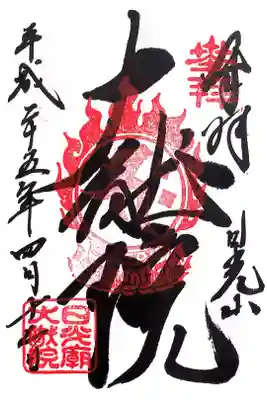 奉拝
日光山
大猷院
平成二十五年四月
日光廟
大猷院